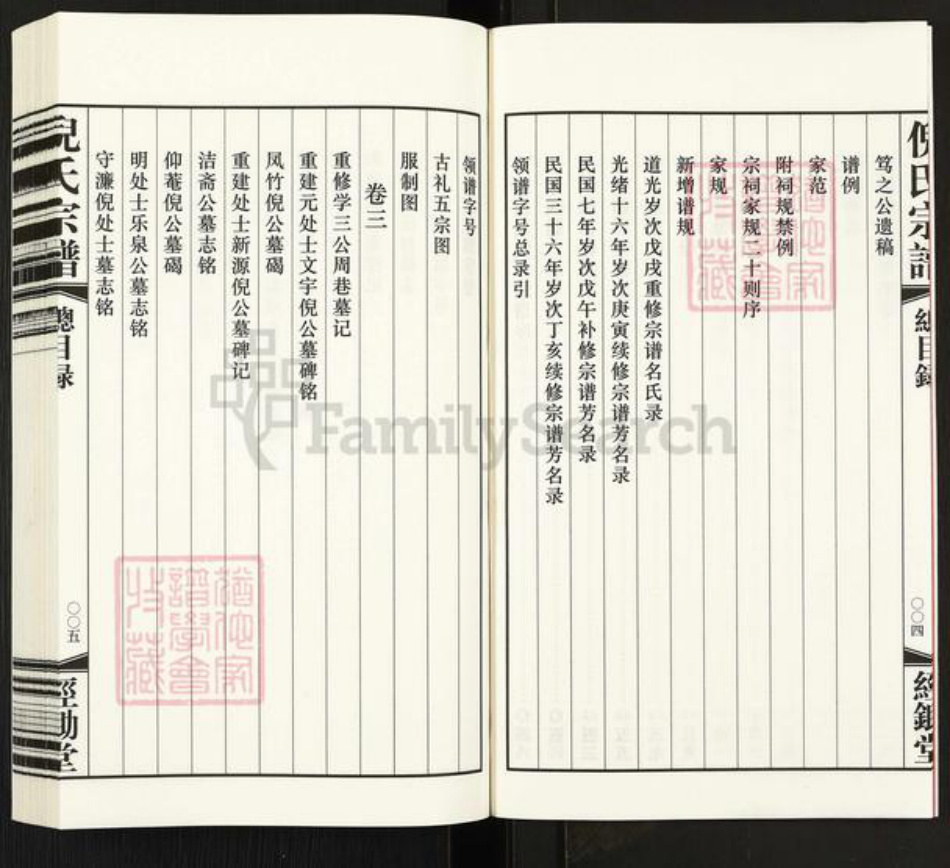 倪氏宗譜
總目録
〇〇四
笃之公遗稿
谱例
家范
附祠规禁例
宗祠家规二十则序
家规
新增谱规
道光岁次戊戌重修宗谱名氏录
光绪十六年岁次庚寅续修宗谱芳名录
民国七年岁次戊午补修宗谱芳名录
民国三十六年岁次丁亥续修宗谱芳名录
领谱字号总录引
领谱字号
古礼五宗图
服制图
卷三
重修学三公周巷墓记
重建元处士文宇倪公墓碑铭
凤竹倪公墓碣
重建处士新源倪公墓碑记
洁斋公墓志铭
仰菴倪公墓碣
明处士乐泉公墓志铭
守濂倪处士墓志铭
倪氏宗譜
總目録
〇〇五
FamilySearch